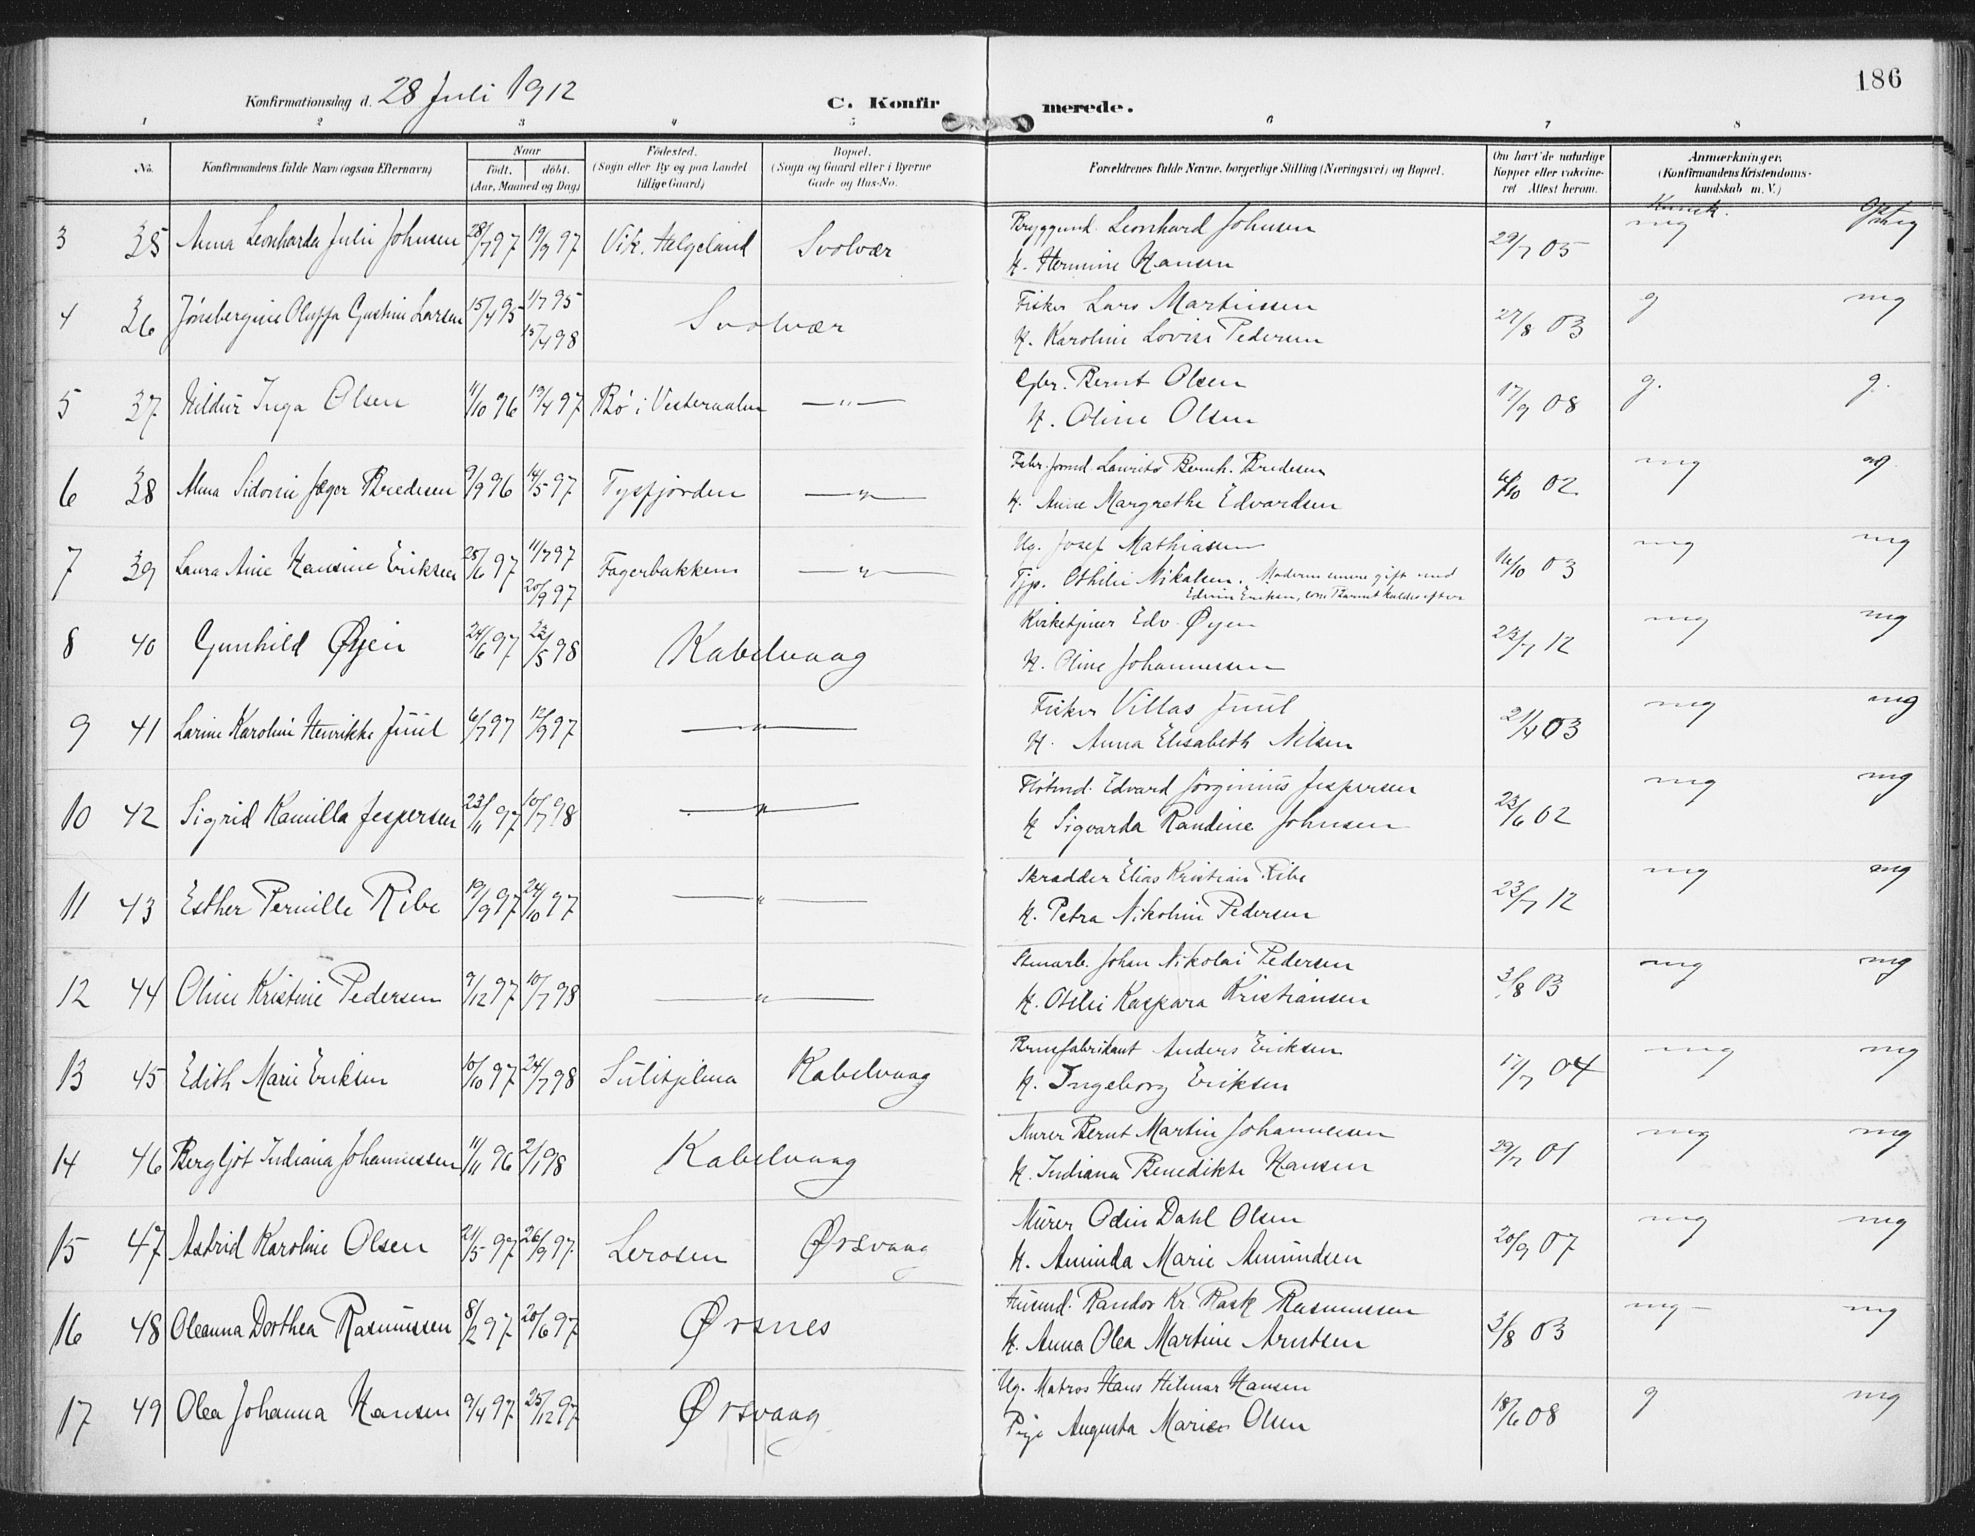 186
Konfirmationsdag d. 28 Juli 1912
C. Konfirmerede.
1 2 3 4 5 6 7 8
No. Konfirmandens fulde Navn (ogsaa Efternavn) Naar født. døbt. (Aar, Maaned og Dag) Fødested. (Sogn eller By og paa Landet tillige Gaard) Bopæl. (Sogn og Gaard eller i Byerne Gade og Hus-No. Forældrenes fulde Navne, borgerlige Stilling (Næringsvei) og Bopæl. Om havt de naturlige Kopper eller vakcineret Attest herom. Anmærkninger. (Konfirmandens Kristendomskundskab m. V.)
Kunsk.
3 35 Anna Leonharda Julie Johnsen 28/7 97 19/9 97 Vik. Helgeland Svolvær Bryggend. Leonhard Johnsen 29/7 05 mg
H. Hermine Hansen
4 36 Jønsbergine Oluffa Gustine Larsen 15/4 95 1/7 95 Svolvær Fisker Lars Martinssen 27/8 03 g mg
15/4 98 H. Karoline Lovise Pedersen
5 37 Hildur Inga Olsen 11/10 96 19/4 97 Bø i Vesteraalen — " — Gbr. Bernt Olsen 17/9 08 g. g.
H. Oline Olsen
6 38 Alma Sidonie Jæger Bredesen 9/9 96 14/5 97 Tysfjorden — " — Fabr. formd. Laurits Bernh. Bredesen 02 mg
H. Anne Margrethe Edvardsen
7 39 Laura Aine Hansine Eriksen 25/6 97 11/7 97 Fagerbakken — " — Ug. Josef Mathiassen 14/10 03 mg mg
20/9 97 Tjp. Othilie Nikalsen. Moderen senere gift med
Edvin Eriksen, som Barnet kaldes efter
8 40 Gunhild Øyen 24/6 97 23/5 98 Kabelvaag Kirketjener Edv. Øyen 23/7 12 mg mg
H. Oline Johannessen
9 41 Larine Karoline Henrikke Juul 6/7 97 12/9 97 — " — Fisker Villas Juul 21/7 03 mg mg
H. Anna Elisabeth Nilsen
10 42 Sigrid Kamilla Jespersen 23/11 97 10/7 98 — " — Flotmd. Edvard Jørginius Jespersen 23/6 02 mg mg
H Sigvarda Randine Johnsen
11 43 Esther Pernille Ribe 19/9 97 24/10 97 — " — Skrædder Elias Kristian Ribe 23/7 12 mg mg
H. Petra Nikoline Pedersen
12 44 Oline Kristine Pedersen 9/12 97 10/7 98 — " — Stenarb. Johan Nikolai Pedersen 3/8 03 mg mg
H. Otilie Kaspara Kristiansen
13 45 Edith Marie Eriksen 10/10 97 24/7 98 Sulitjelma Kabelvaag Brusfabrikant Anders Eriksen 17/7 04 mg mg
H. Ingeborg Eriksen
14 46 Bergljot Indiana Johannessen 11/11 96 2/1 98 Kabelvaag Murer Bernt Martin Johannessen 29/7 01 mg mg
H. Indiana Benedikte Hansen
15 47 Astrid Karoline Olsen 21/5 97 26/9 97. Lerosen Ørsvaag Murer Odin Dahl Olsen 20/9 07 mg mg
H. Aminda Marie Amundsen
16 48 Oleanna Dorthea Rasmussen 8/2 97 20/6 97 Ørsnes Husmd. Randor Kr. Rask Rasmussen 3/8 03 mg mg
H. Anna Olea Martine Arntsen
17 49 Olea Johanna Hansen 9/4 97 25/12 97 Ørsvaag Ug. Matros Hans Hilmar Hansen 18/6 08 g mg
Pige Augusta Marie Olsen